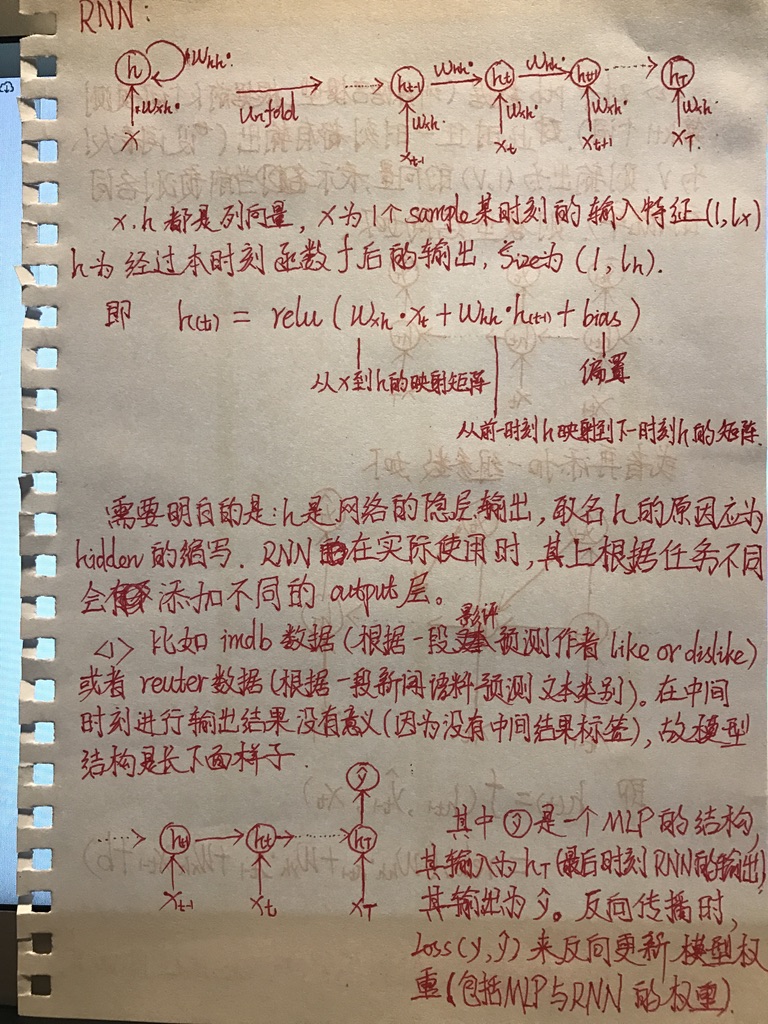 RNN:
h Whh· Whh· Whh·
Unfold ht-1 ht ht+1 hT
Wxh· Wxh· Wxh· Wxh· Wxh·
X Xt-1 Xt Xt+1 XT
x.h 都是列向量, x为1个sample某时刻的输入特征(1,lx)
h为经过本时刻函数f后的输出, size为(1,lh).
即 h(t) = relu (Wxh·xt + Whh·h(t-1) + bias)
从x到h的映射矩阵 偏置
从前一时刻h映射到下一时刻h的矩阵.
需要明白的是:h是网络的隐层输出,取名h的原因应为
hidden的缩写. RNN在实际使用时,其上根据任务不同
会添加不同的output层。
<1> 比如imdb数据(根据一段影评预测作者like or dislike)
或者reuter数据(根据一段新闻语料预测文本类别)。在中间
时刻进行输出结果没有意义(因为没有中间结果标签),故模型
结构是长下面样子.
ŷ
ht-1 ht hT
Xt-1 Xt XT
其中ŷ是一个MLP的结构,
其输入为hT(最后时刻RNN的输出)
其输出为ŷ。反向传播时,
Loss(y,ŷ)来反向更新模型权
重(包括MLP与RNN的权重).